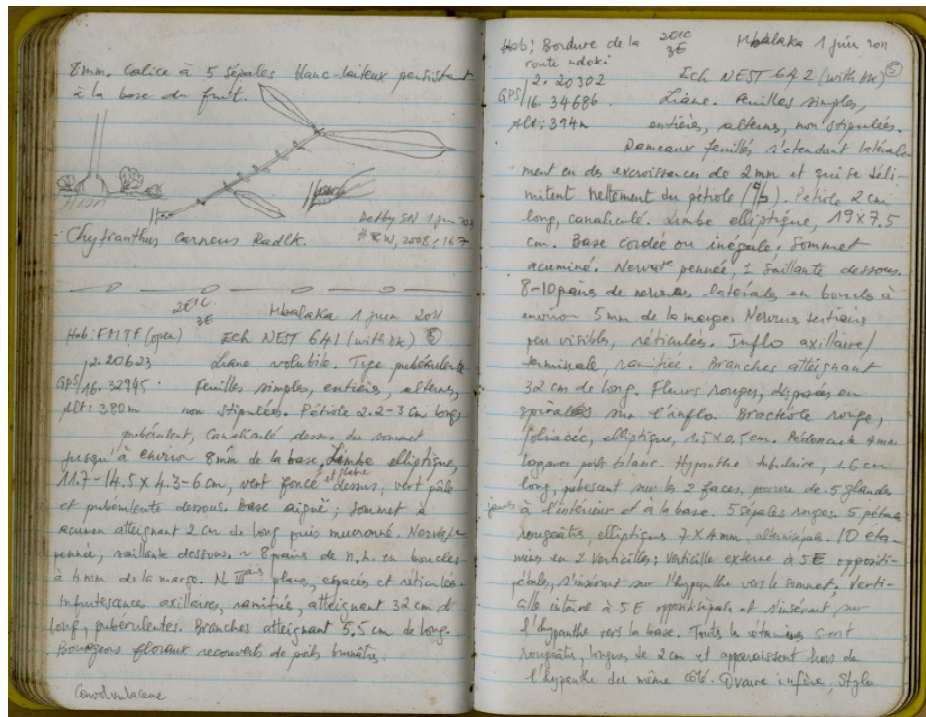 8mm. Calice à 5 sépales blanc-laiteux persistant
à la base du fruit.
Det by SN 1 juin 2011
H & W, 2008: 167
Chytranthus carneus Radlk.
2E1C
3E
Mbalaka 1 juin 2011
Hab: FMTF (open) Ech NEST 641 (with DK) ⑤
2.20623 Liane volubile. Tige pubérulente
GPS/16.32945. Feuilles simples, entières, alternes,
Alt: 380m non stipulées. Pétiole 2.2-3 cm long,
pubérulent, canaliculé dessus du sommet
jusqu'à environ 8mm de la base. Limbe elliptique,
11.7-14.5 x 4.3-6 cm, vert foncé et glabre dessus, vert pâle
et pubérulente dessous. Base aiguë; sommet à
acumen atteignant 2 cm de long puis mucroné. Nervat°
pennée, saillante dessous, ~ 8 pairs de n.l. en boucles
à 4mm de la marge. N IIIaires planes, espacés et réticulés.
Infrutescences axillaires, ramifiée, atteignant 32 cm de
long, pubérulentes. Branches atteignant 5,5 cm de long.
Bourgeons floraux recouverts de poils brunâtres.
Convolvulaceae
Hab: Bordure de la 2E1C Mbalaka 1 juin 2011
route ndoki 3E ⑤
2.20302 Ech NEST 642 (with DK)
GPS/16.34686. Liane. Feuilles simples,
Alt: 394m entières, alternes, non stipulées.
Rameaux feuillés s'étendant latérale
ment en des excroissances de 2mm et qui se déli-
mitent nettement du pétiole. Pétiole 2 cm
long, canaliculé. Limbe elliptique, 19 x 7.5
cm. Base cordée ou inégale. Sommet
acuminé. Nervat° pennée, ± saillante dessous.
8-10 pairs de nervures latérales en boucles à
environ 5mm de la marge. Nervures tertiaires
peu visibles, réticulés. Inflo axillaire/
terminale, ramifiée. Branches atteignant
32 cm de long. Fleurs rouges, disposées en
spirales sur l'inflo. Bractéole rouge,
foliacée, elliptique, 1.5 x 0,5 cm. Pédoncule 4mm
poils blancs. Hypanthe tubulaire, 1.6 cm
long, pubescent sur les 2 faces, pourvu de 5 glandes
jaunes à l'intérieur et à la base. 5 sépales rouges. 5 pétales
rougeâtres elliptiques 7 x 4 mm, alternisépales. 10 éta-
mines en 2 verticilles; verticille externe à 5E oppositi-
pétales, s'insérant sur l'hypanthe vers le sommet, verti-
cille interne à 5E oppositisépales et s'insérant sur
l'hypanthe vers la base. Toutes les étamines sont
rougeâtres, longues de 2 cm et apparaissent hors de
l'hypanthe du même côté. Ovaire infère, style